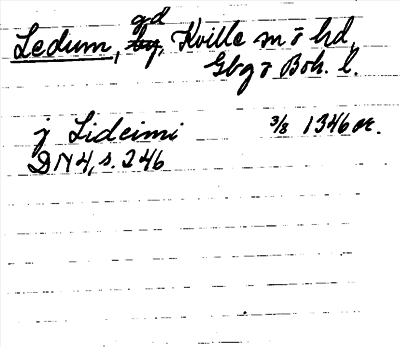 Ledum, gd, Kville sn o hd,
Gbg o Boh. l.
j Lideimi 3/8 1346 or.
DN 4, s. 246